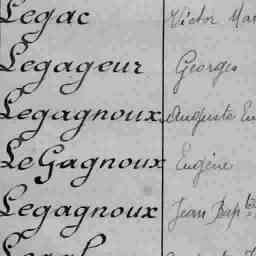 Legac Victor Mar
Legageur Georges
Legagnoux Auguste Eu
LeGagnoux Eugène
Legagnoux Jean Bapte